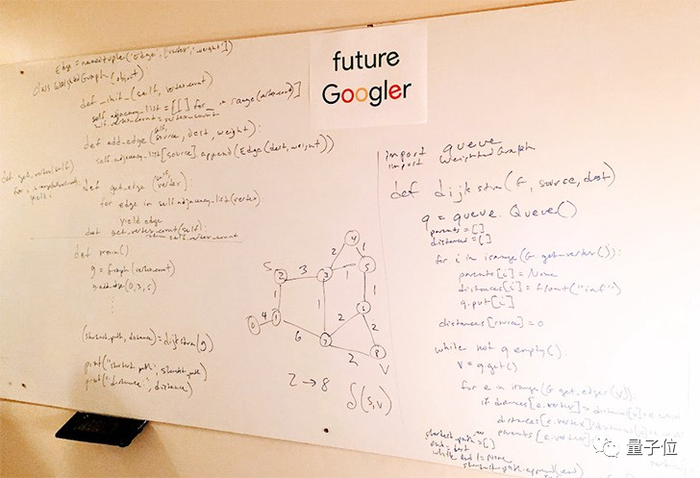 future
Googler
Edge = namedtuple('Edge', ['vertex', 'weight'])
class WeightedGraph(object)
def _init_(self, vertex_count)
self.adjacency_list = [[] for _ in range(vertex_count)]
def add_edge(self, source, dest, weight):
self.adjacency_list[source].append(Edge(dest, weight))
def get_edge(self, vertex):
for edge in self.adjacency_list(vertex)
yield edge
def get_vertex_count(self):
return self.vertex_count
def get_vertex(self)
yield i
def main()
g = Graph(vertex_count)
g.add_edge(0,3,5)
⋮
(shortest_path, distance) = dijkstra(g)
print("shortest path", shortest_path)
print("distance:", distance)
4
2
1
S
2
3
3
1
5
1
1
1
6
0
4
1
2
2
6
7
2
8
V
2 → 8
δ(s,v)
import queue
import WeightedGraph
def dijkstra(G, source, dest)
q = queue.Queue()
parents = []
distances = []
for i in irange(G.get_vertex()):
parents[i] = None
distances[i] = float("inf")
q.put[i]
distances[source] = 0
while not q.empty():
v = q.get()
for e in irange(G.get_edges(v)):
if distances[e.vertex] > distance[v] + e.
distances[e.vertex]
parents[e.vertex]
shortest_path = []
end = dest
while end != None
shortest_path.append(end)
量子位